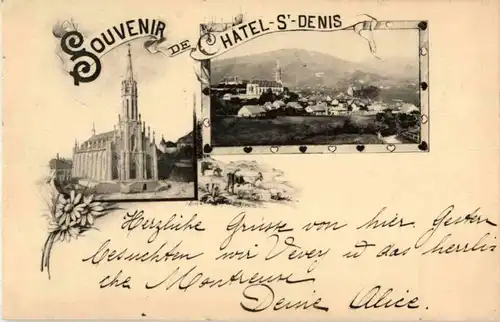 SOUVENIR DE CHÂTEL-ST-DENIS
Herzliche Grüsse von hier. Gestern
besuchten wir Vevey u d das herrli-
che Montreux.
Deine Alice.